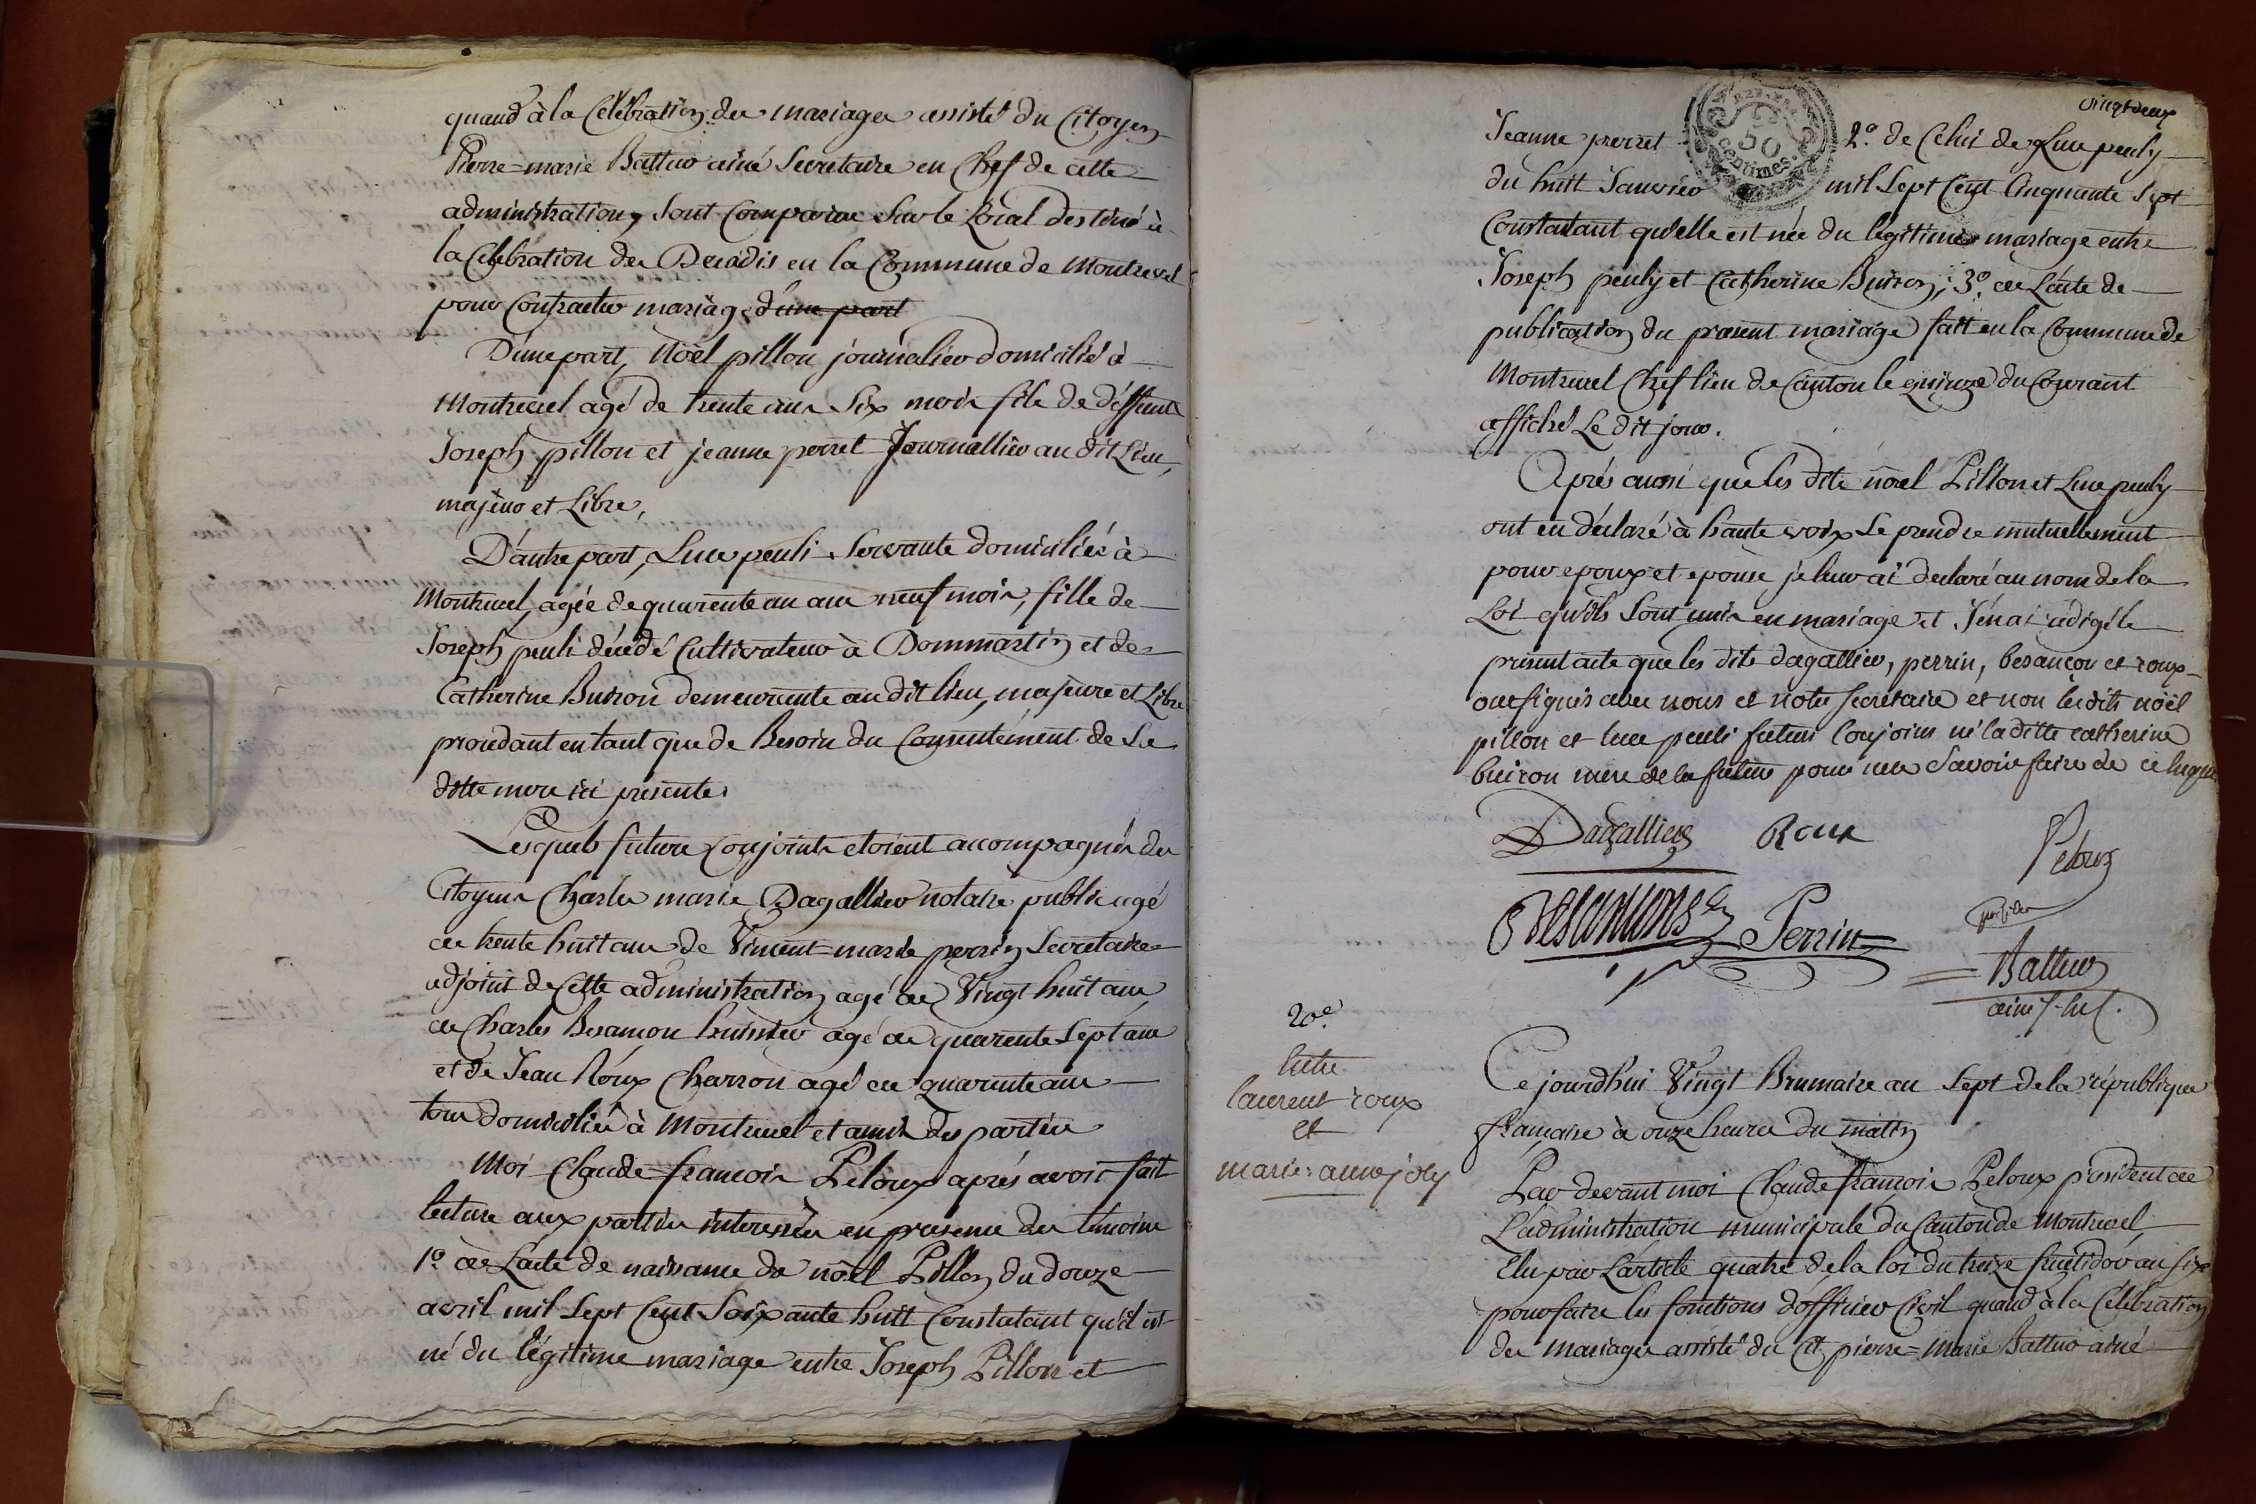 quand à la Célébration des mariages assisté du Citoyen
Pierre=marie Battur ainé Secretaire en Chef de cette
administration, sont Comparus sur le Local destiné à
la Célébration des Decadis en la Commune de Montrevel
pour Contracter mariage d'une part
D'une part, Nöel pillon journalier domicilié à
Montrevel agé de trente ans six mois fils de déffunt
Joseph pillon et jeanne perret Journallier au dit Lieu,
majeur et Libre,
D'autre part, Luce peuli Servante domiciliée à
Montrevel, agée de quarente un ans neuf mois, fille de
Joseph peuli décédé Cultivateur à Dommartin et de
Catherine Buiron demeurante au dit lieu, majeure et Libre
procédant en tant que de Besoin du Consentément de Sa
ditte mere ici présente.
Lesquels futurs Conjoints etoient accompagnés des
Citoyens Charles marie Dagallier notaire public agé
de trente huit ans de Vincent=marie perrin Secretaire
adjoint de Cette administration agé de Vingt huit ans
de Charles Besançon huissier agé de quarente Sept ans
et de Jean Roux Charron agé de quarente ans
tous domiciliés à Montrevel et amis des parties
Moi Claude=françois Peloux aprés avoir fait
lecture aux parties interessées en presence des témoins
1º. de L'acte de naissance de nöel Pillon du douze
avril mil Sept Cent Soixante huit Constatant qu'il est
né du légitime mariage entre Joseph Pillon et
vingt deux
Jeanne perret 2º. de Celui de Luce peuly
50 centimes.
du huit Janvier mil Sept Cent Cinquante Sept
Constatant qu'elle est née du légitime mariage entre
Joseph peuly et Catherine Buiron; 3º. de L'acte de
publication du present mariage fait en la Commune de
Montrevel Chef lieu de Canton le quinze du Courant
affiché Le dit jour.
Aprés aussi que les dits nöel Pillon et Luce peuly
ont eu déclaré à haute voix Se prendre mutuellement
pour epoux et epouse je leur ai declaré au nom de la
Loi qu'ils Sont unis en mariage et J'en ai rédigé le
present acte que les dits dagallier, perrin, besançon et roux
ont signés avec nous et notre secretaire et non lesdits nöël
pillon et luce peuli futurs Conjoins ni la ditte catherine
buiron mere de la future pour ne Savoir faire de ce enquis
Dagallier Roux
Peloux
presider
Besancons Perrin
Battur
ainé
20e.
Entre
laurent roux
et
marie=anne joly
Ce jourd'hui Vingt Brumaire an Sept de la république
française à onze heures du matin
Par devant moi Claude françois Peloux président de
L'administration municipale du Canton de Montrevel,
Elu par L'article quatre de la loi du treize fructidor an six
pour faire les fonctions d'officier Civil quand à la Célébration
des mariages assisté du Cit. pierre=marie Battur ainé